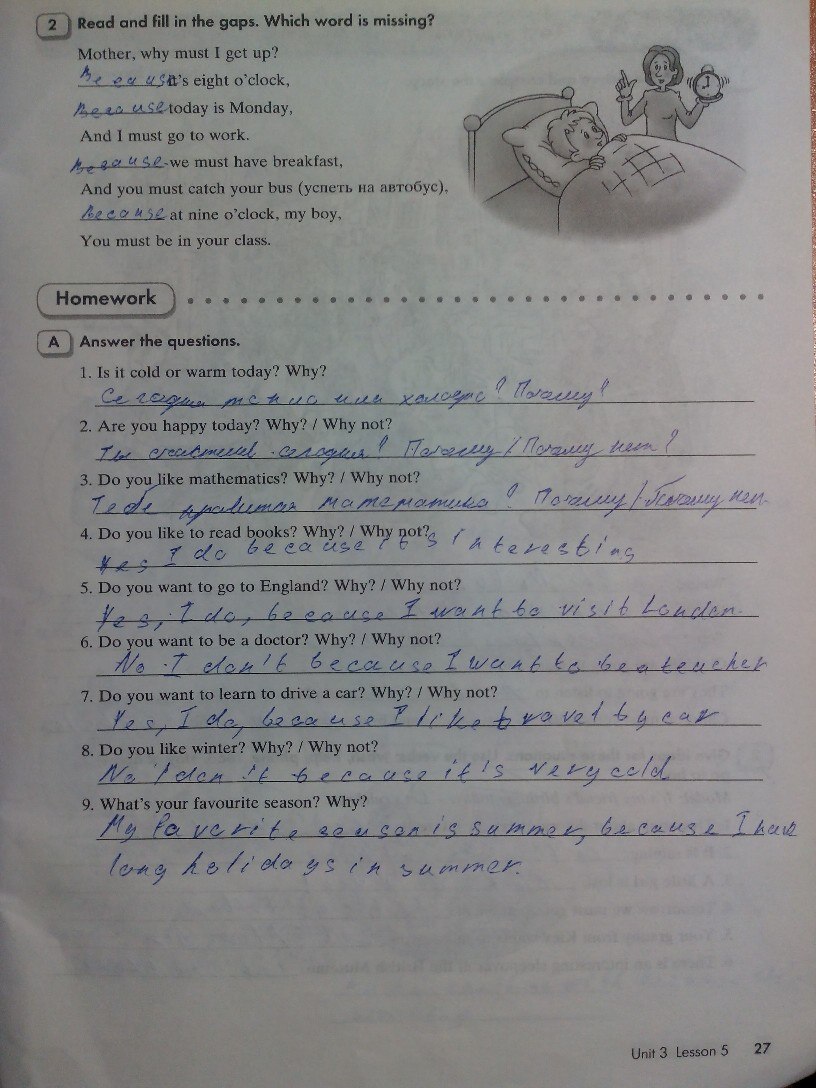 2 Read and fill in the gaps. Which word is missing?
Mother, why must I get up?
Because it's eight o'clock,
Because today is Monday,
And I must go to work.
Because we must have breakfast,
And you must catch your bus (успеть на автобус),
Because at nine o'clock, my boy,
You must be in your class.
Homework
A Answer the questions.
1. Is it cold or warm today? Why?
Сегодня тепло или холодно? Почему?
2. Are you happy today? Why? / Why not?
Ты счастлив сегодня? Почему/Почему нет?
3. Do you like mathematics? Why? / Why not?
Тебе нравится математика? Почему/Почему нет
4. Do you like to read books? Why? / Why not?
Yes I do because it's interesting
5. Do you want to go to England? Why? / Why not?
Yes, I do, because I want to visit London.
6. Do you want to be a doctor? Why? / Why not?
No I don't because I want to be a teacher
7. Do you want to learn to drive a car? Why? / Why not?
Yes, I do, because I like travel by car
8. Do you like winter? Why? / Why not?
No I don't because it's very cold
9. What's your favourite season? Why?
My favorite season is summer, because I have
long holidays in summer.
Unit 3 Lesson 5 27